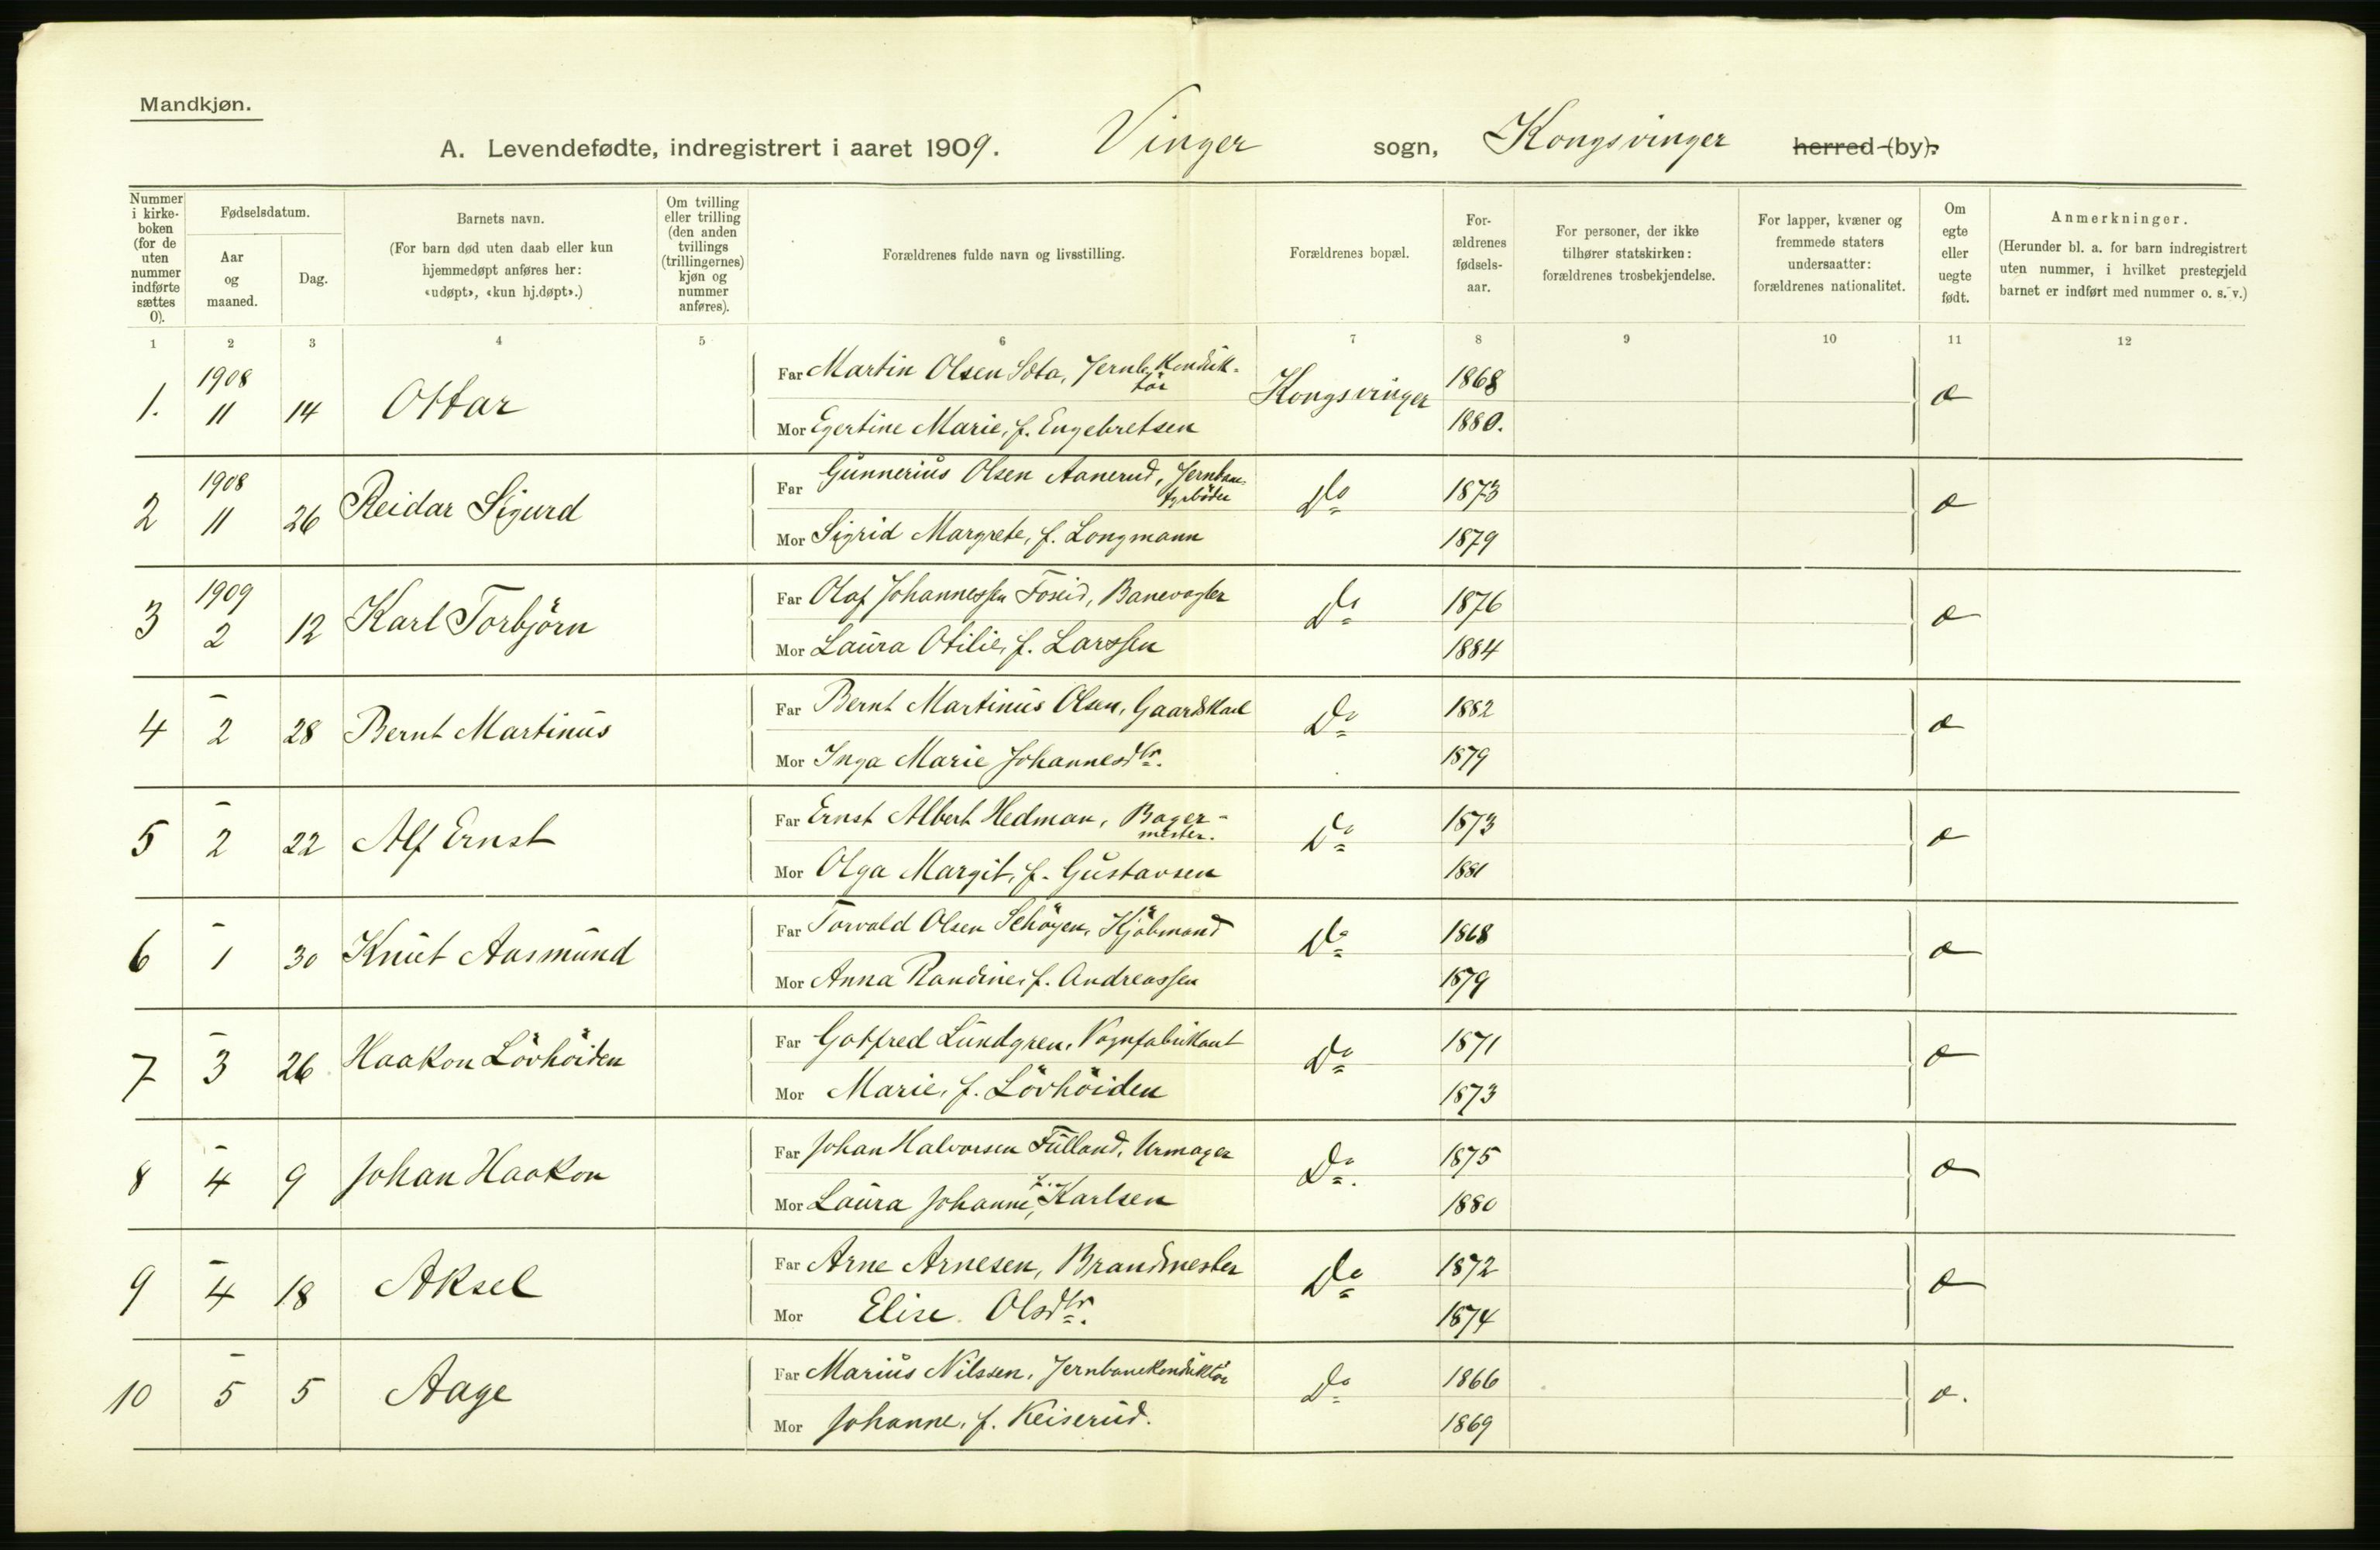 Mandkjøn.
A. Levendefødte, indregistrert i aaret 1909. Vinger sogn, Kongsvinger herred (by).
Nummer i kirke- boken (for de uten nummer indførte sættes 0).
Fødselsdatum.
Aar og maaned.
Dag.
Barnets navn.
(For barn død uten daab eller kun hjemmedøpt anføres her: «udøpt», «kun hj.døpt».)
Om tvilling eller trilling (den anden tvillings (trillingernes) kjøn og nummer anføres).
Forældrenes fulde navn og livsstilling.
Forældrenes bopæl.
For- ældrenes fødsels- aar.
For personer, der ikke tilhører statskirken: forældrenes trosbekjendelse.
For lapper, kvæner og fremmede staters undersaatter: forældrenes nationalitet.
Om egte eller uegte født.
Anmerkninger.
(Herunder bl. a. for barn indregistrert uten nummer, i hvilket prestegjeld barnet er indført med nummer o. s. v.)
1 2 3 4 5 6 7 8 9 10 11 12
1. 1908 11 14 Ottar Far Martin Olsen Sota, Jernb. Konduktör Kongsvinger 1868 æ
Mor Egertine Marie, f. Engebretsen 1880.
2 1908 11 26 Reidar Sigurd Far Gunnerius Olsen Aanerud, Jernban. fyrböder Do 1873 æ
Mor Sigrid Margrete, f. Longmann 1879
3 1909 2 12 Karl Torbjörn Far Olaf Johannessen Foseid, Banevogter Do 1876 æ
Mor Laura Otilie, f. Larssen 1884
4 – 2 28 Bernt Martinus Far Bernt Martinus Olsen, Gaardskarl Do 1882 æ
Mor Inga Marie Johannesdtr. 1879
5 – 2 22 Alf Ernst Far Ernst Albert Hedman, Bager- mester. Do 1873 æ
Mor Olga Margit, f. Gustavsen 1881
6 – 1 30 Knut Aasmund Far Torvald Olsen Schöyen, Kjöbmand Do 1868 æ
Mor Anna Randine, f. Andreassen 1879
7 – 3 26 Haakon Lövhöiden Far Gotfred Lundgren, Vognfabrikant Do 1871 æ
Mor Marie, f. Lövhöiden 1873
8 – 4 9 Johan Haakon Far Johan Halvorsen Fulland, Urmager Do. 1875 æ
Mor Laura Johanne, f. Karlsen 1880
9 – 4 18 Aksel Far Arne Arnesen, Brandmester Do 1872 æ
Mor Elise Olsdtr. 1874
10 – 5 5 Aage Far Marius Nilssen, Jernbanekonduktör Do 1866 æ.
Mor Johanne, f. Keiserud. 1869